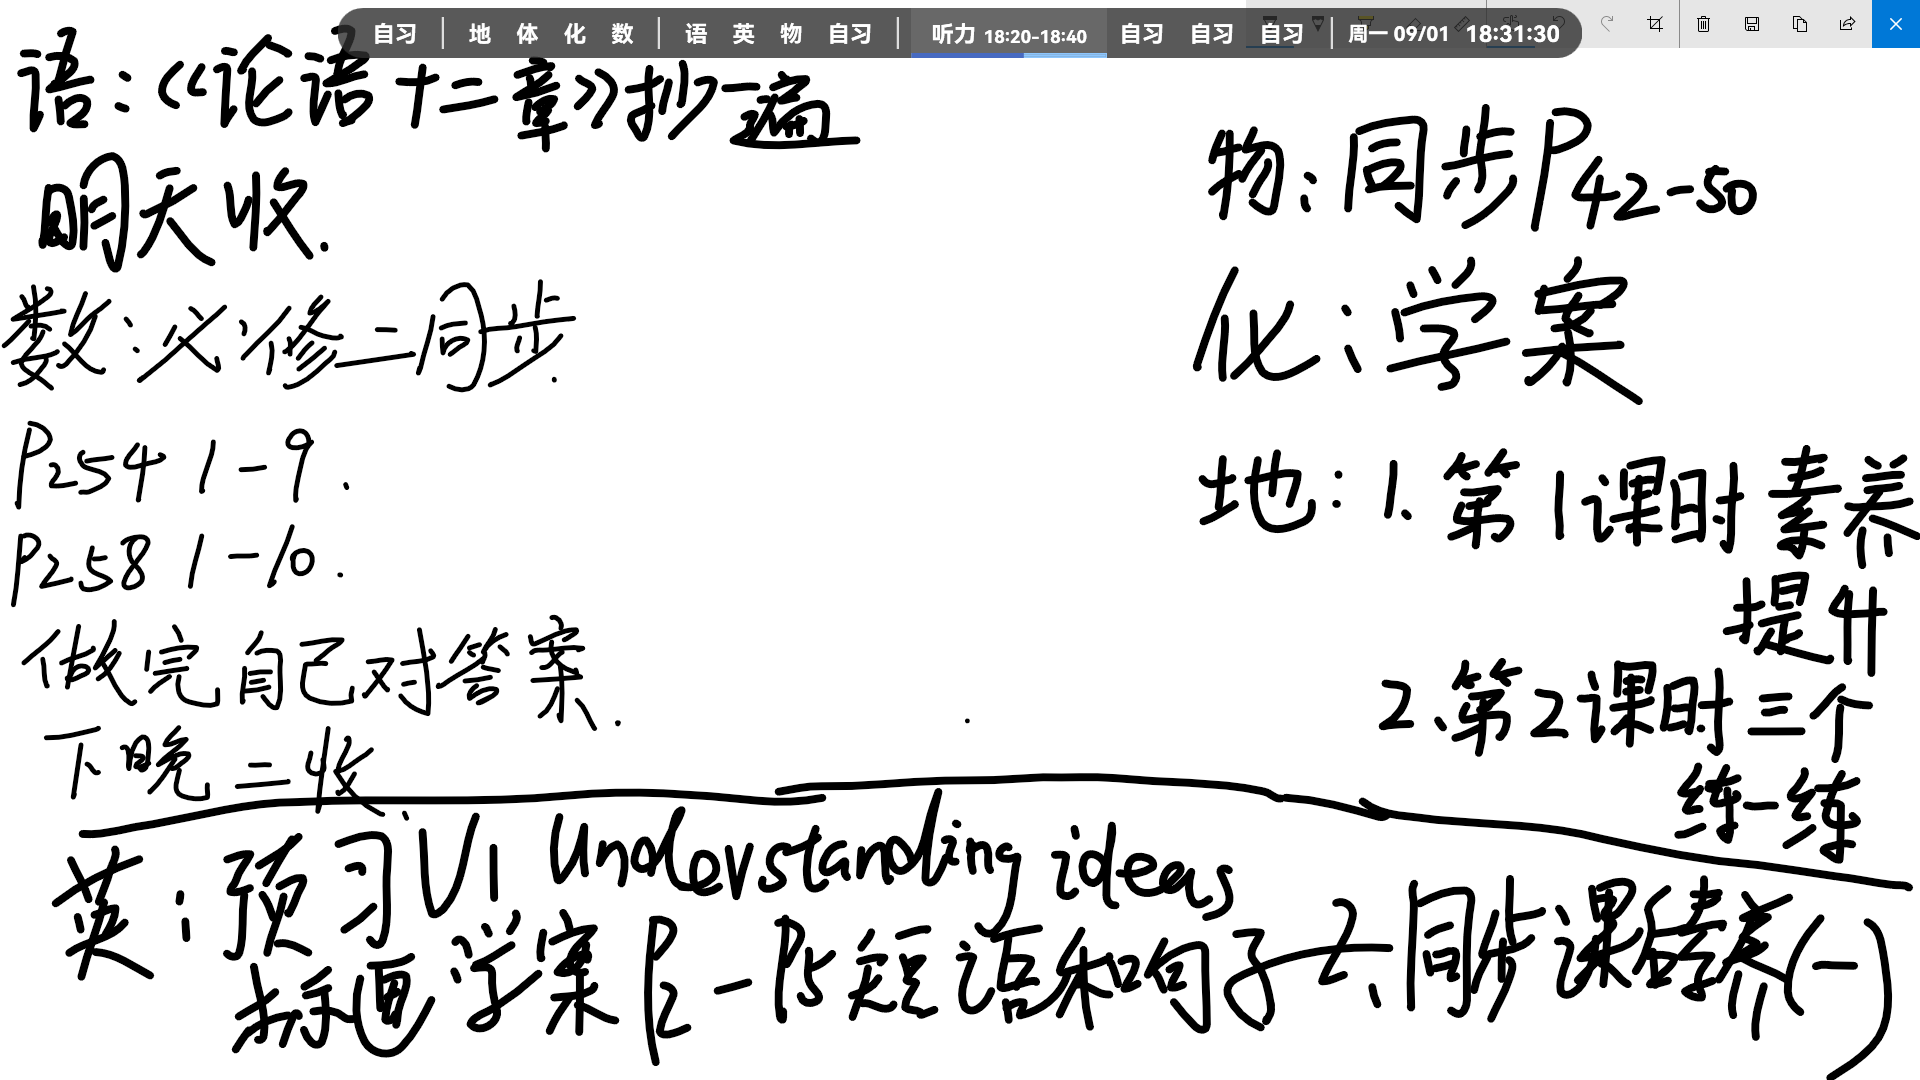 自习 | 地 体 化 数 | 语 英 物 自习 | 听力 18:20-18:40 自习 自习 自习 | 周一 09/01 18:31:30
语:《论语十二章》抄一遍
明天收.
数:必修二同步.
P254 1-9.
P258 1-10.
做完自己对答案.
下晚二收.
物:同步P42-50
化:学案
地:1.第1课时素养
提升
2.第2课时三个
练一练
英:预习U1 Understanding ideas
标画学案P2-P5短语和句子 2.同步课后素养(一)